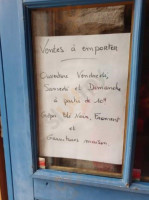 Ventes à emporter
Ouverture Vendredi,
Samedi et Dimanche
à partir de 10h
Crêpes Blé Noir, Froment
et
maison.